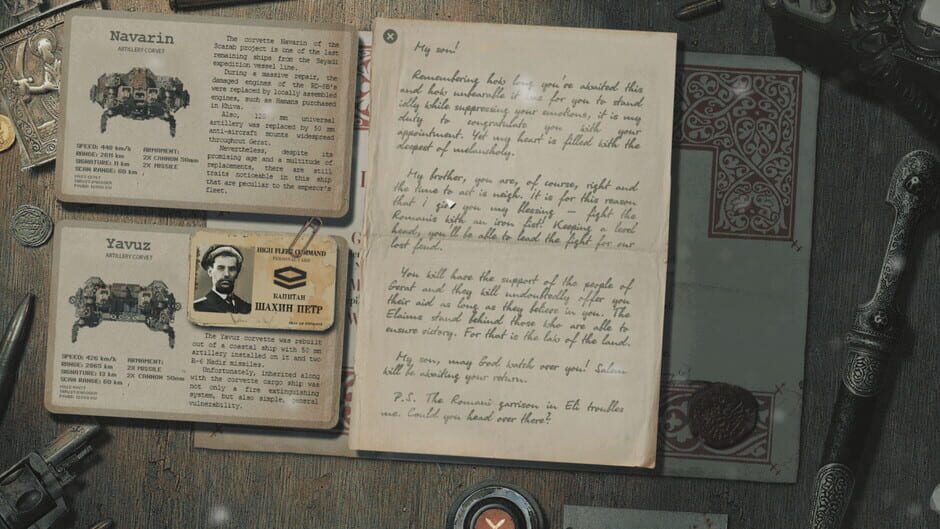 Navarin
ARTILLERY CORVET
The corvette Navarin of the
Scazab project is one of the last
remaining ships from the Sayadi
expedition vessel line.
During a massive repair, the
damaged engines of the RD-6B's
were replaced by locally assembled
engines, such as Hamans purchased
in Khiva.
Also, universal
artillery was replaced by 50 mm
anti-aircraft mounts widespread
throughout Gerat.
Nevertheless, despite its
promising age and a multitude of
replacements, there are still
traits noticeable in this ship
that are peculiar to the emperor's
fleet.
SPEED: 440 km/h
RANGE: 2011 km
SIGNATURE: 11 km
SCAN RANGE: 60 km
ARMAMENT:
2X CANNON 50mm
2X MISSILE
Yavuz
ARTILLERY CORVET
SPEED: 426 km/h
RANGE: 2065 km
SIGNATURE: 13 km
SCAN RANGE: 60 km
ARMAMENT:
2X MISSILE
2X CANNON 50mm
HIGH FLEET COMMAND
PERSONAL CARD
КАПИТАН
ШАХИН ПЕТР
The Yavuz corvette was rebuilt
out of a coastal ship with 50 mm
artillery installed on it and two
R-6 Nadir missiles.
Unfortunately, inherited along
with the corvette cargo ship was
not only a fire extinguishing
system, but also simple, general
vulnerability.
My son!
Remembering how long you've awaited this
and how unbearable it was for you to stand
idly while suppressing your emotions, it is my
duty to congratulate you with your
appointment. Yet my heart is filled with the
deepest of melancholy.
My brother, you are, of course, right and
the time to act is neigh. It is for this reason
that I give you my blessing – fight the
Romanis with an iron fist! Keeping a level
head, you'll be able to lead the fight for our
lost feud.
You will have the support of the people of
Gerat and they will undoubtedly offer you
their aid as long as they believe in you. The
Elaims stand behind those who are able to
ensure victory. For that is the law of the land.
My son, may God watch over you! Salem
will be awaiting your return.
P.S. The Romani garrison in Eli troubles
me. Could you head over there?